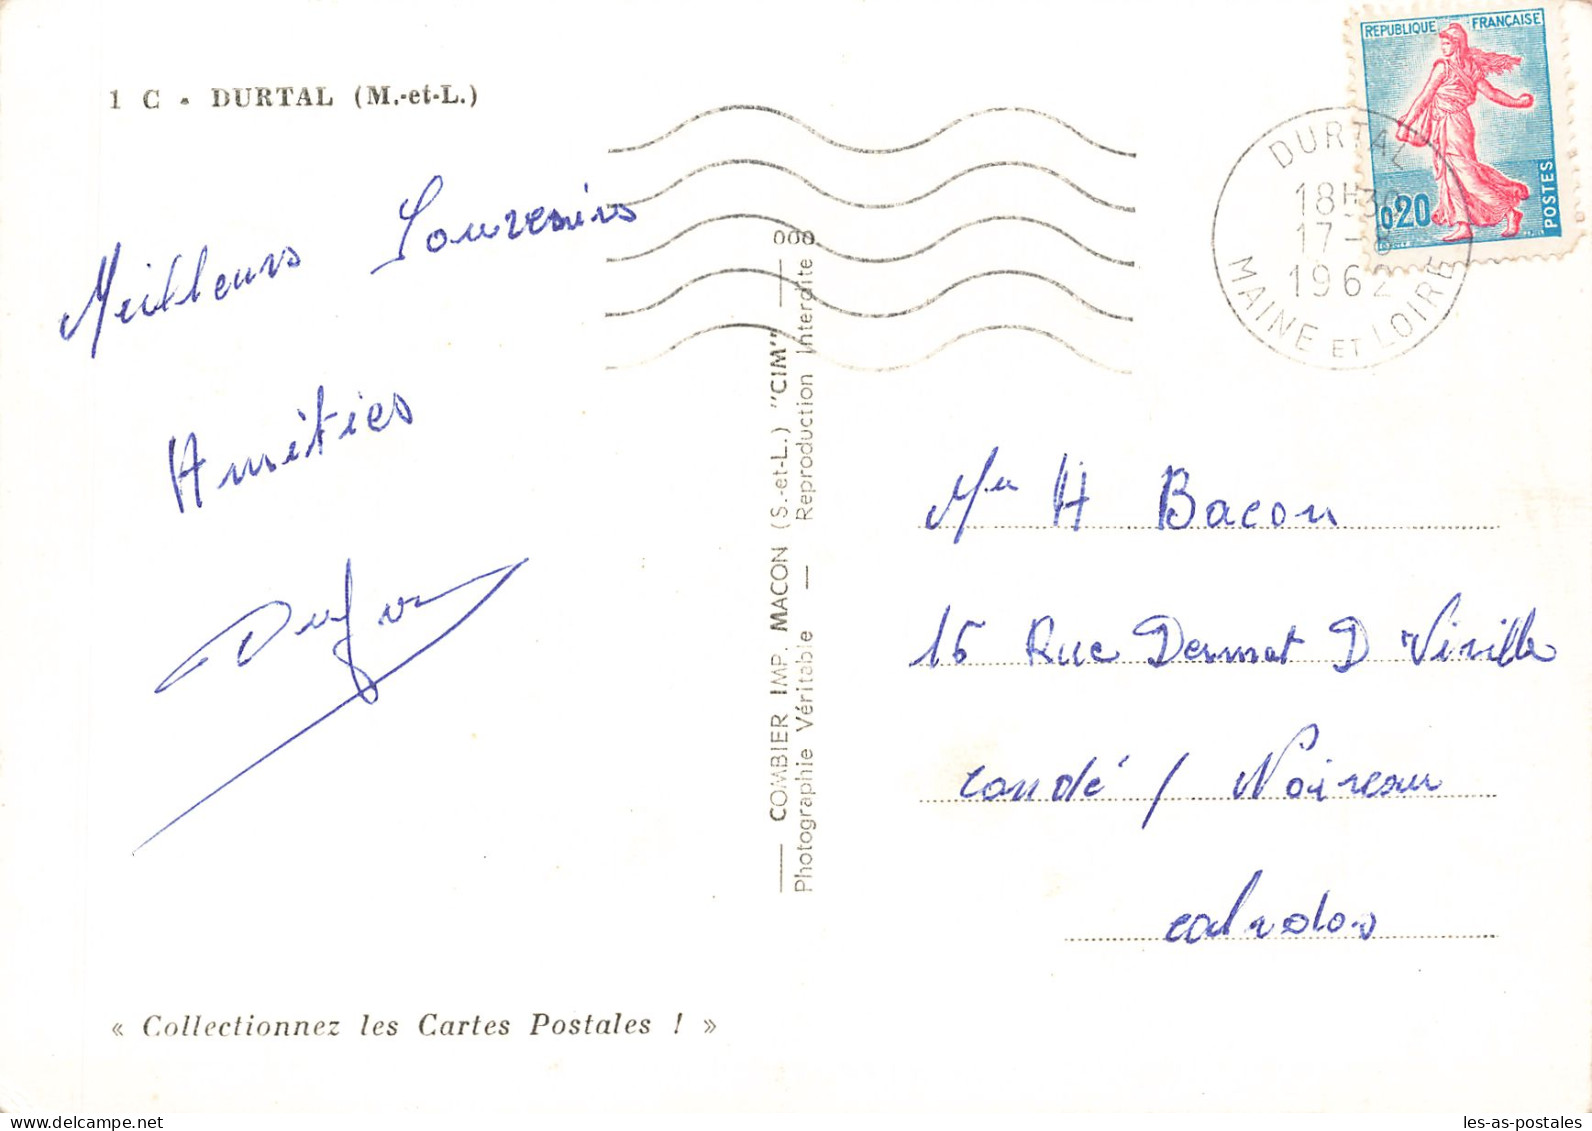 1 C - DURTAL (M.-et-L.)
Meilleurs Souvenirs
Amitiés
« Collectionnez les Cartes Postales ! »
COMBIER IMP. MACON (S.-et-L.) "CIM"
Photographie Véritable — Reproduction Interdite
REPUBLIQUE FRANÇAISE
0,20
POSTES
DURTAL
18H30
17-8
1962
MAINE ET LOIRE
H Bacon
15 Rue Dumont D Urville
condé / Noireau
calvados
Delcampe.net
les-as-postales